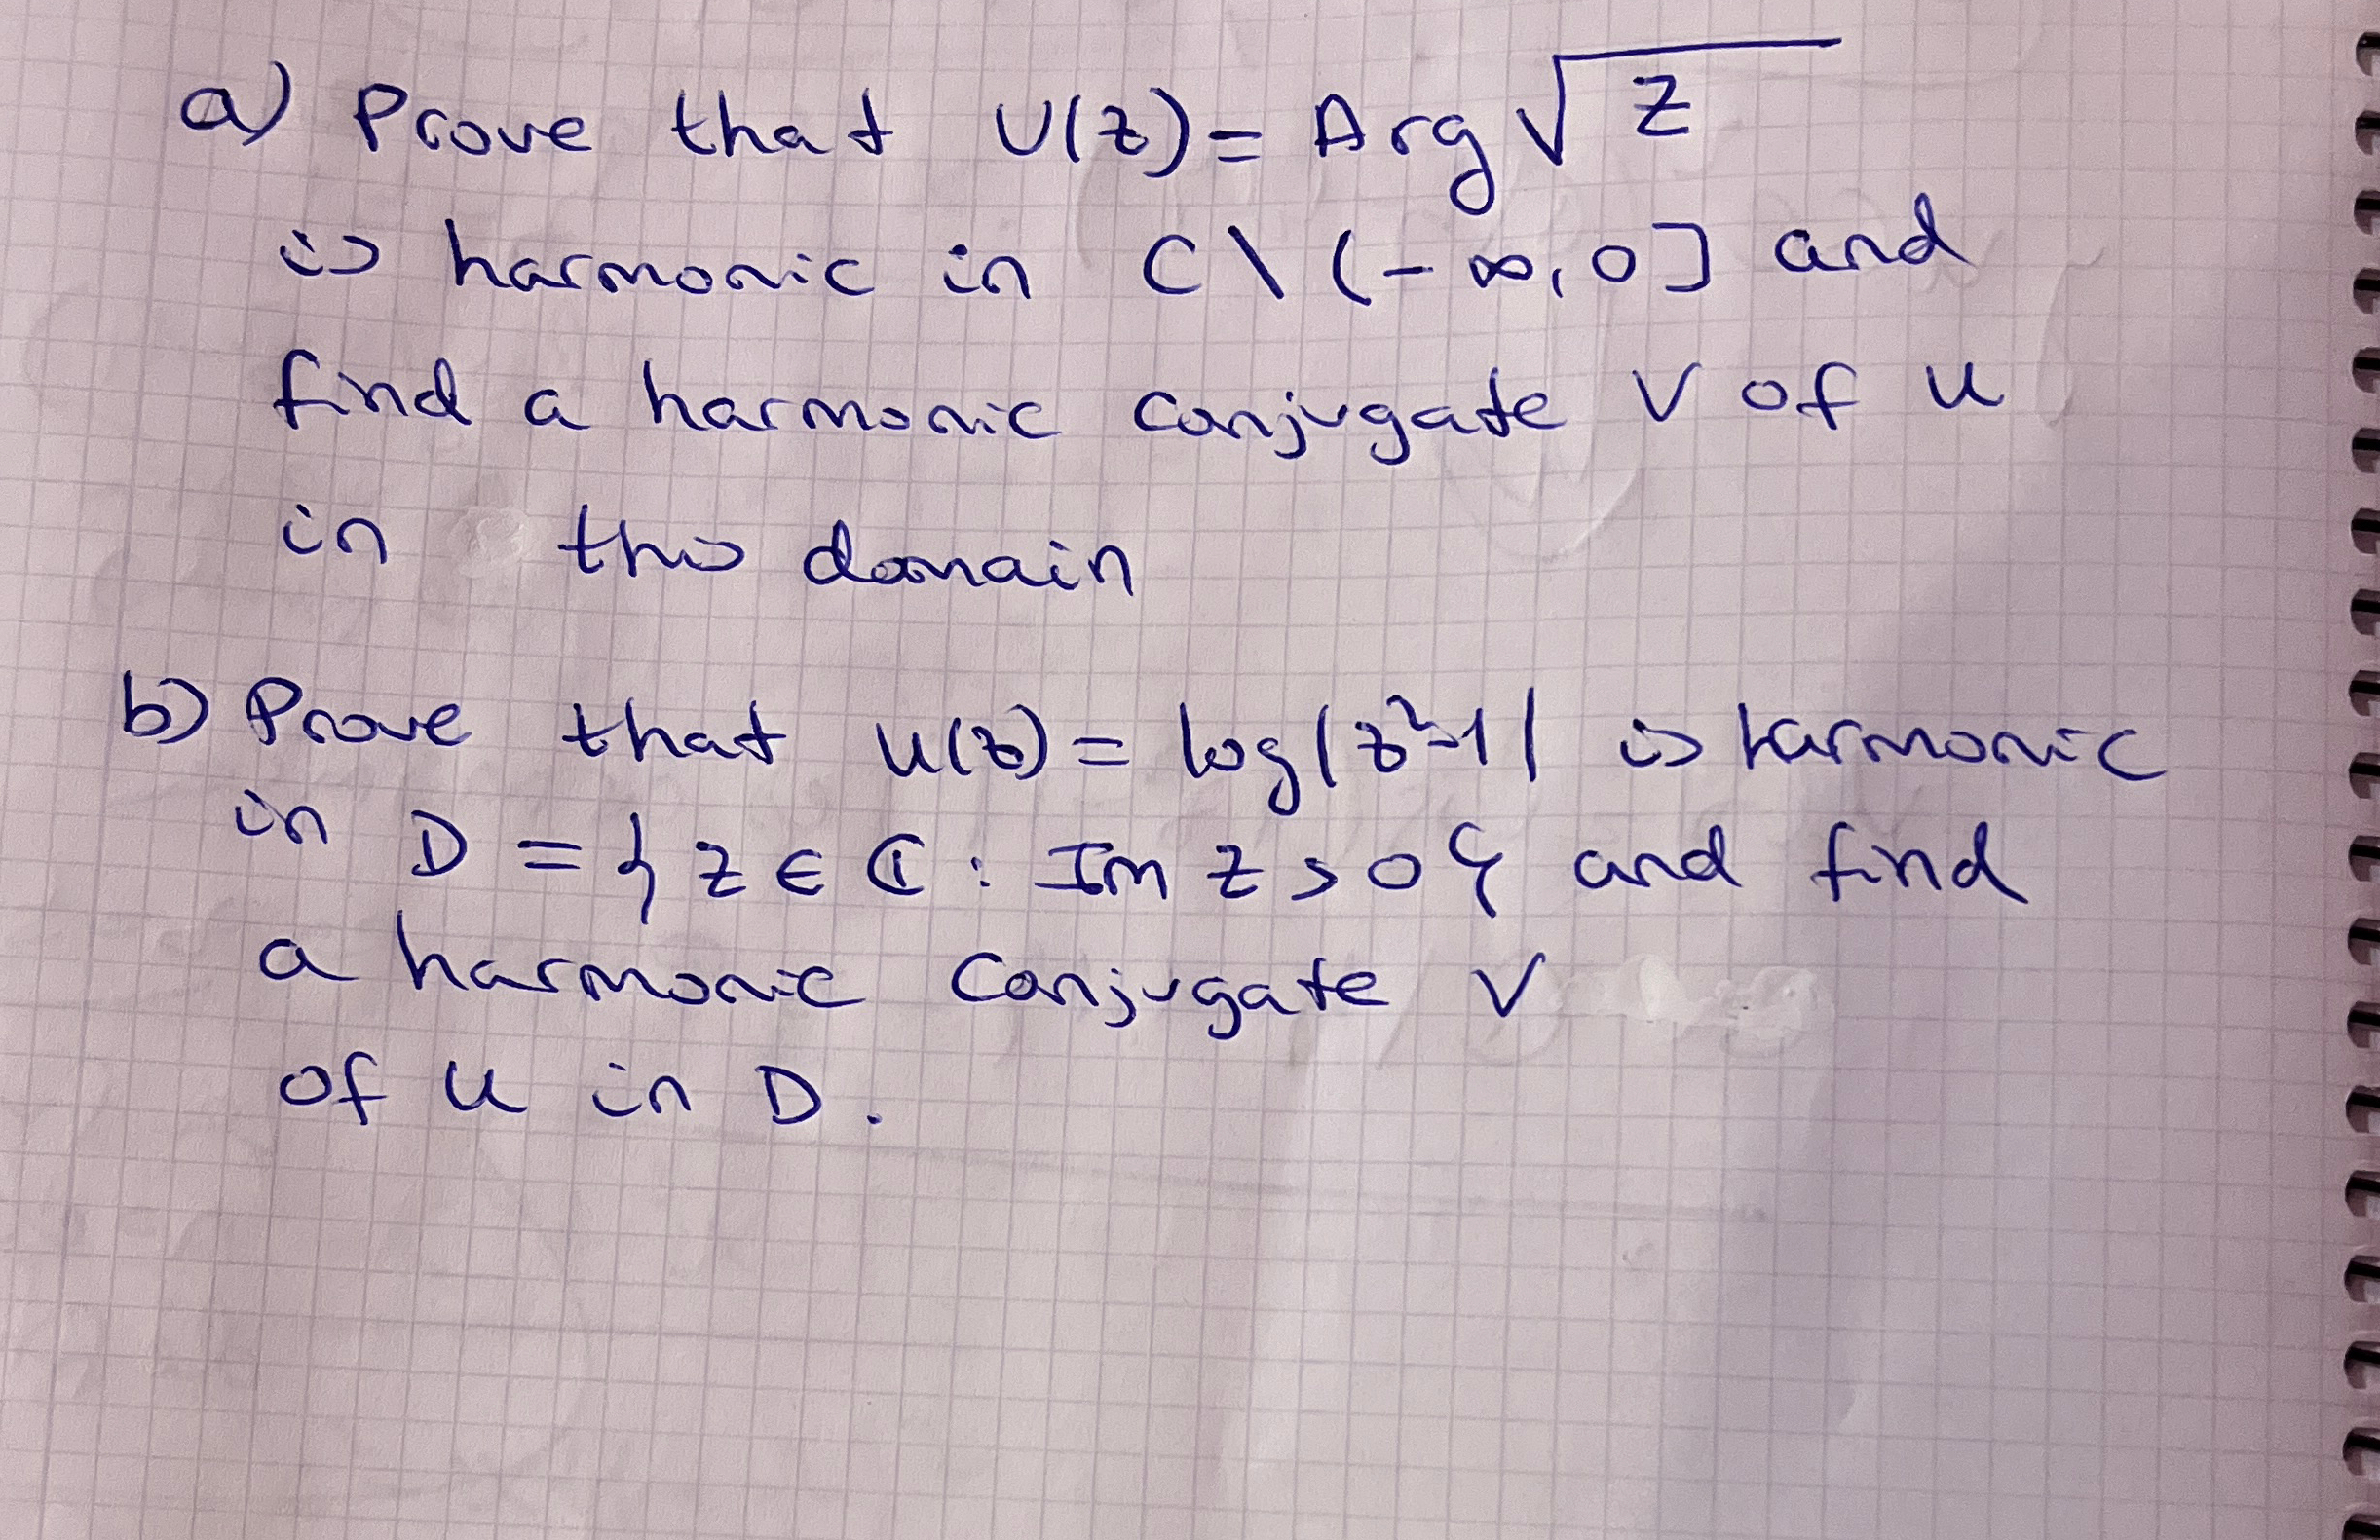 a) Prove that U(z) = Arg √z
is harmonic in C \ (-∞, 0] and
find a harmonic conjugate V of u
in this domain
b) Prove that u(z) = log|z²-1| is harmonic
in D = {z ∈ ℂ : Im z > 0} and find
a harmonic conjugate V
of u in D.